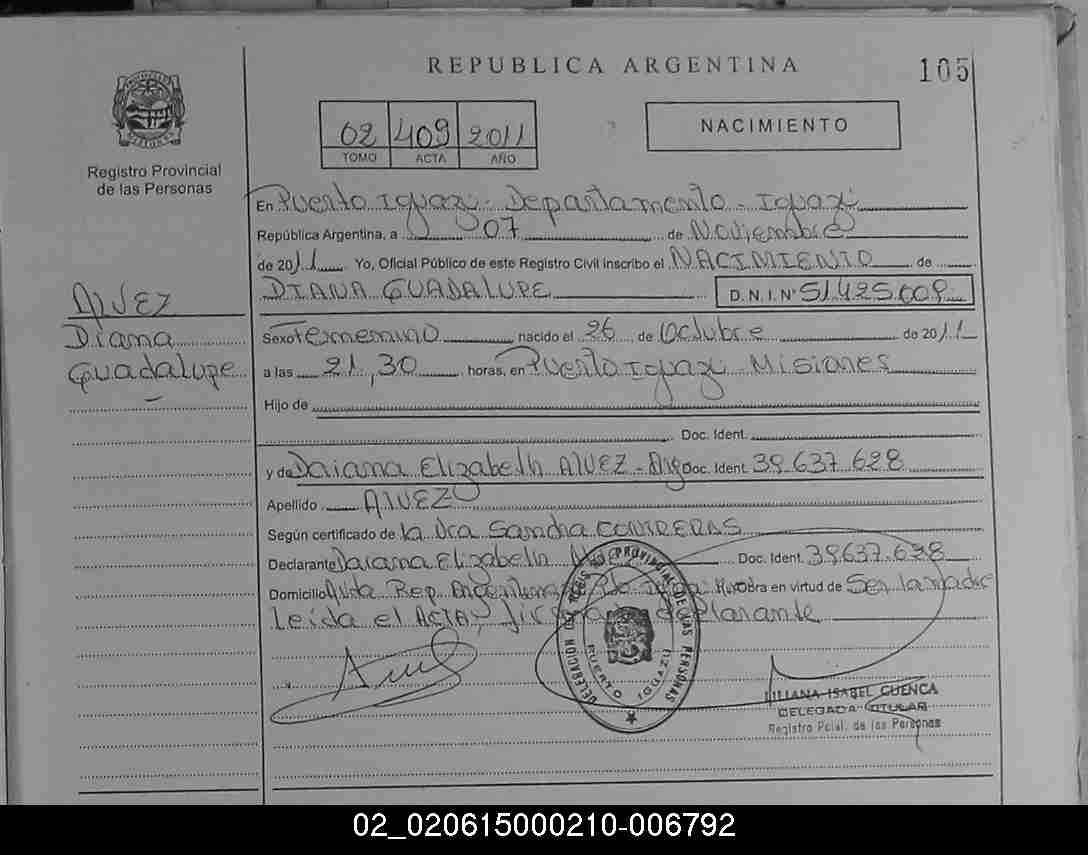 REPUBLICA ARGENTINA
105
Registro Provincial
de las Personas
02 409 2011
TOMO ACTA AÑO
NACIMIENTO
ALVEZ
Diana
Guadalupe
En Puerto Iguazú - Departamento - Iguazú
República Argentina, a 07 de Noviembre
de 2011 Yo, Oficial Público de este Registro Civil inscribo el NACIMIENTO de
DIANA GUADALUPE D.N.I. Nº 51.425.009
Sexo Femenino nacido el 26 de Octubre de 2011
a las 21,30 horas, en Puerto Iguazú - Misiones
Hijo de
Doc. Ident.
y de Daiana Elizabeth ALVEZ - Arg Doc. Ident. 39.637.628
Apellido ALVEZ
Según certificado de la Dra Sandra CONTRERAS
Declarante Daiana Elizabeth Doc. Ident. 39.637.628
Domicilio Avda Rep. Argentina Pto Obra en virtud de Ser la madre
Leída el ACTA, declarante
DELEGACION DEL REGISTRO PROVINCIAL DE LAS PERSONAS
PUERTO IGUAZU
LILIANA ISABEL CUENCA
DELEGADA TITULAR
Registro Pcial. de las Personas
02_020615000210-006792